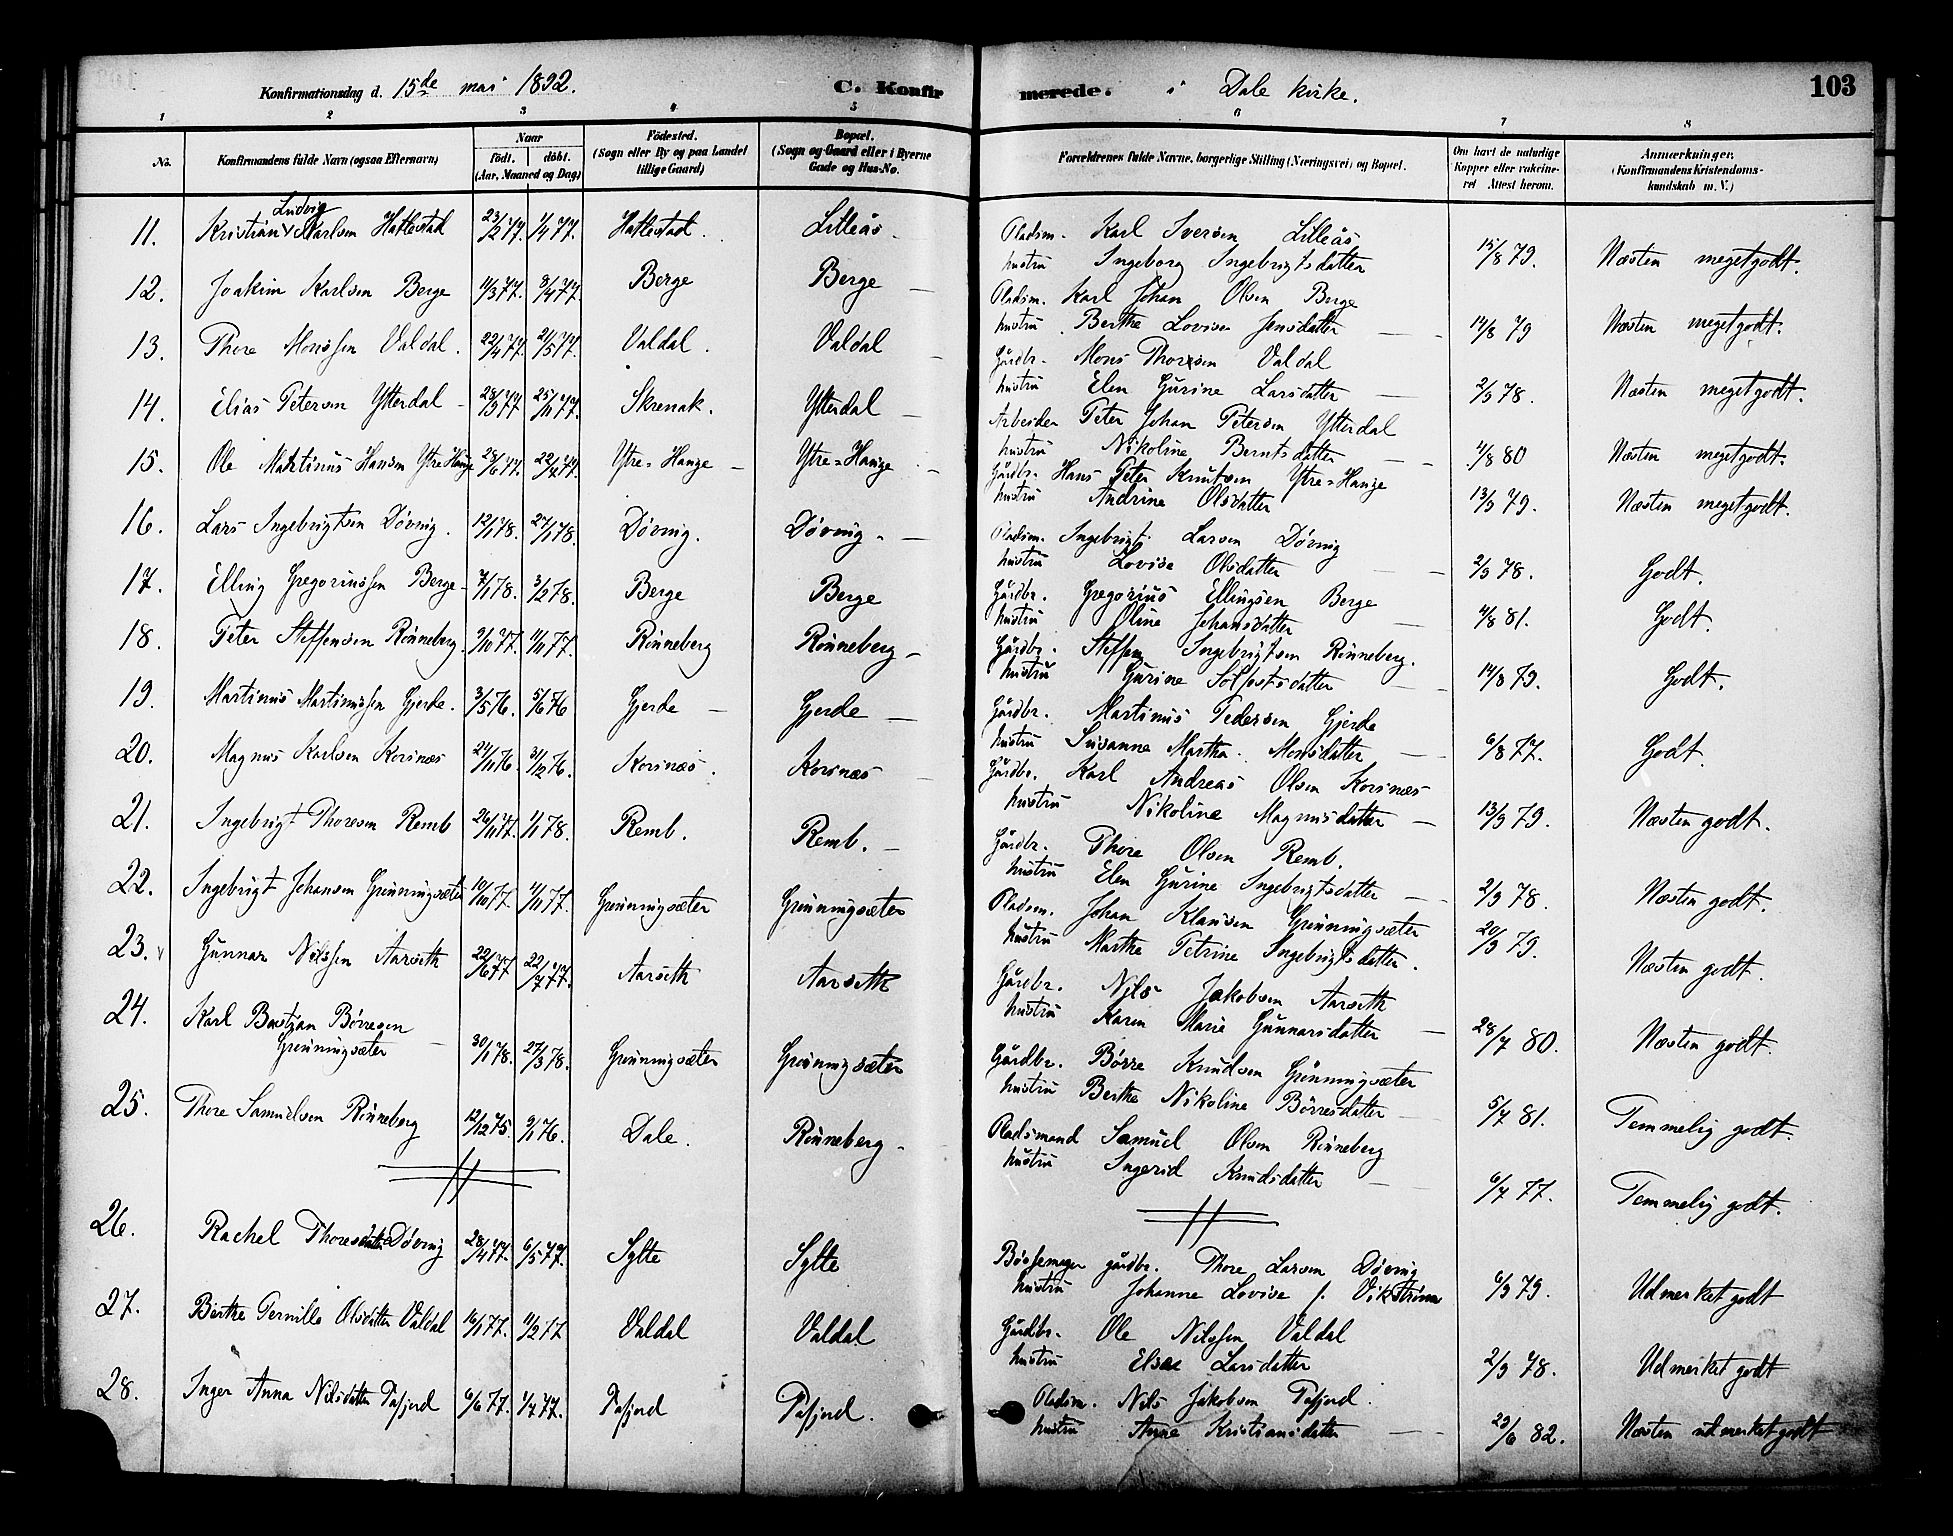 Konfirmationsdag d. 15de mai 1892. C. Konfir merede. i Dale kirke. 103
1 2 3 4 5 6 7 8
No. Konfirmandens fulde Navn (ogsaa Efternavn) Naar födt. döbt. (Aar, Maaned og Dag) Födested. (Sogn eller By og paa Landet tillige Gaard) Bopæl. (Sogn og Gaard eller i Byerne Gade og Hus-No. Forældrenes fulde Navne, borgerlige Stilling (Næringsvei) og Bopæl. Om havt de naturlige Kopper eller vakcineret Attest herom. Anmærkninger. (Konfirmandens Kristendomskundskab m. V.)
11. Kristian Ludvig Karlsen Hattestad 23/2 77. 1/4 77. Hattestad. Lilleås Pladsm. Karl Iversen Lilleås
hustru Ingeborg Ingebrigtsdatter 15/8 79. Næsten megetgodt.
12. Joakim Karlsen Berge 11/3 77. 3/4 77. Berge Berge Pladsm. Karl Johan Olsen Berge
hustru Berthe Lovise Jensdatter 14/8 79 Næsten megetgodt.
13. Thore Monssen Valdal. 22/4 77. 21/5 77. Valdal. Valdal Gårdbr. Mons Thoresen Valdal
hustru Elen Gurine Larsdatter 2/3 78. Næsten megetgodt.
14. Elias Petersen Ytterdal 25/11 77. Skrenak. Ytterdal Arbeider Peter Johan Petersen Ytterdal
hustru Nikoline Berntsdatter 4/8 80 Næsten megetgodt.
15. Ole Martinus Hansen Ytre Hauge Ytre-Hauge Ytre-Hauge Gårdbr. Hans Peter Knutsen Ytre-Hauge
hustru Andrine Olsdatter 13/3 79. Næsten megetgodt.
16. Lars Ingebrigtsen Døving. 12/1 78. 27/1 78. Døving. Døving. Pladsm. Ingebrigt Larsen Døving
hustru Lovise Olsdatter 2/3 78. Godt.
17. Elling Gregoriussen Berge 7/1 78. 3/2 78. Berge Berge Gårdbr. Gregorius Ellingsen Berge
hustru Oline Johansdatter 4/8 81. Godt.
18. Peter Steffensen Rønneberg. 9/10 77. 11/11 77. Rønneberg Rønneberg Gårdbr. Steffen Ingebrigtsen Rønneberg.
hustru Gurine Solfestsdatter 14/8 79. Godt.
19. Martinus Martinussen Gjerde. 3/5 76. 5/6 76 Gjerde Gjerde Gårdbr. Martinus Pedersen Gjerde
hustru Susanne Martha Monsdatter 6/8 77. Godt.
20. Magnus Karlsen Korsnæs 24/11 76. 31/12 76. Korsnæs. Korsnæs Gårdbr. Karl Andreas Olsen Korsnæs
hustru Nikoline Magnusdatter 13/3 79. Næsten godt.
21. Ingebrigt Thoresen Remb 26/11 77. 1/1 78. Remb. Remb. Gårdbr. Thore Olsen Remb.
hustru Elen Gurine Ingebrigtsdatter 2/3 78. Næsten godt.
22. Ingebrigt Johansen Grønningsæter 10/10 77. 11/11 77. Grønningsæter Grønningsæter Pladsm. Johan Klausen Grønningsæter
hustru Marthe Petrine Ingebrigtsdatter. 20/3 79. Næsten godt.
23. Gunnar Nilssen Aarseth 22/6 77 22/7 77. Aarseth Aarseth Gårdbr. Nils Jakobsen Aarseth
hustru Karen Marie Gunnarsdatter 28/7 80. Næsten godt.
24. Karl Bastian Børresen
Grønningsæter 30/1 78. 27/3 78. Grønningsæter Grønningsæter Gårdbr. Børre Knudsen Grønningsæter
hustru Berthe Nikoline Børresdatter 5/7 81. Temmelig godt.
25. Thore Samuelsen Rønneberg 12/12 75. 9/1 76. Dale. Rønneberg Pladsmand Samuel Olsen Rønneberg
hustru Ingerid Knudsdatter 6/7 77. Temmelig godt.
26. Rachel Thoresdatter Døving 28/4 77. 6/5 77. Sylte Sylte Bøssemager gårdbr. Thore Larsen Døving
hustru Johanne Lovise f. Vikstrøm 6/3 79. Udmerket godt
27. Berthe Pernille Olsdatter Valdal 16/1 77. 11/2 77 Valdal Valdal. Gårdbr. Ole Nilssen Valdal
hustru Elsae Larsdatter 2/3 78. Udmerket godt
28. Inger Anna Nilsdatter Tafjord 6/6 77. 1/7 77. Tafjord Tafjord. Pladsm. Nils Jakobsen Tafjord.
hustru Anne Kristiansdatter 29/6 82. Næsten udmerket godt